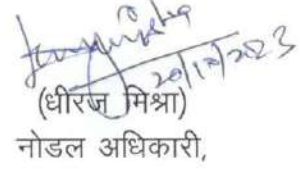 20/12/2023
(धीरज मिश्रा)
नोडल अधिकारी,